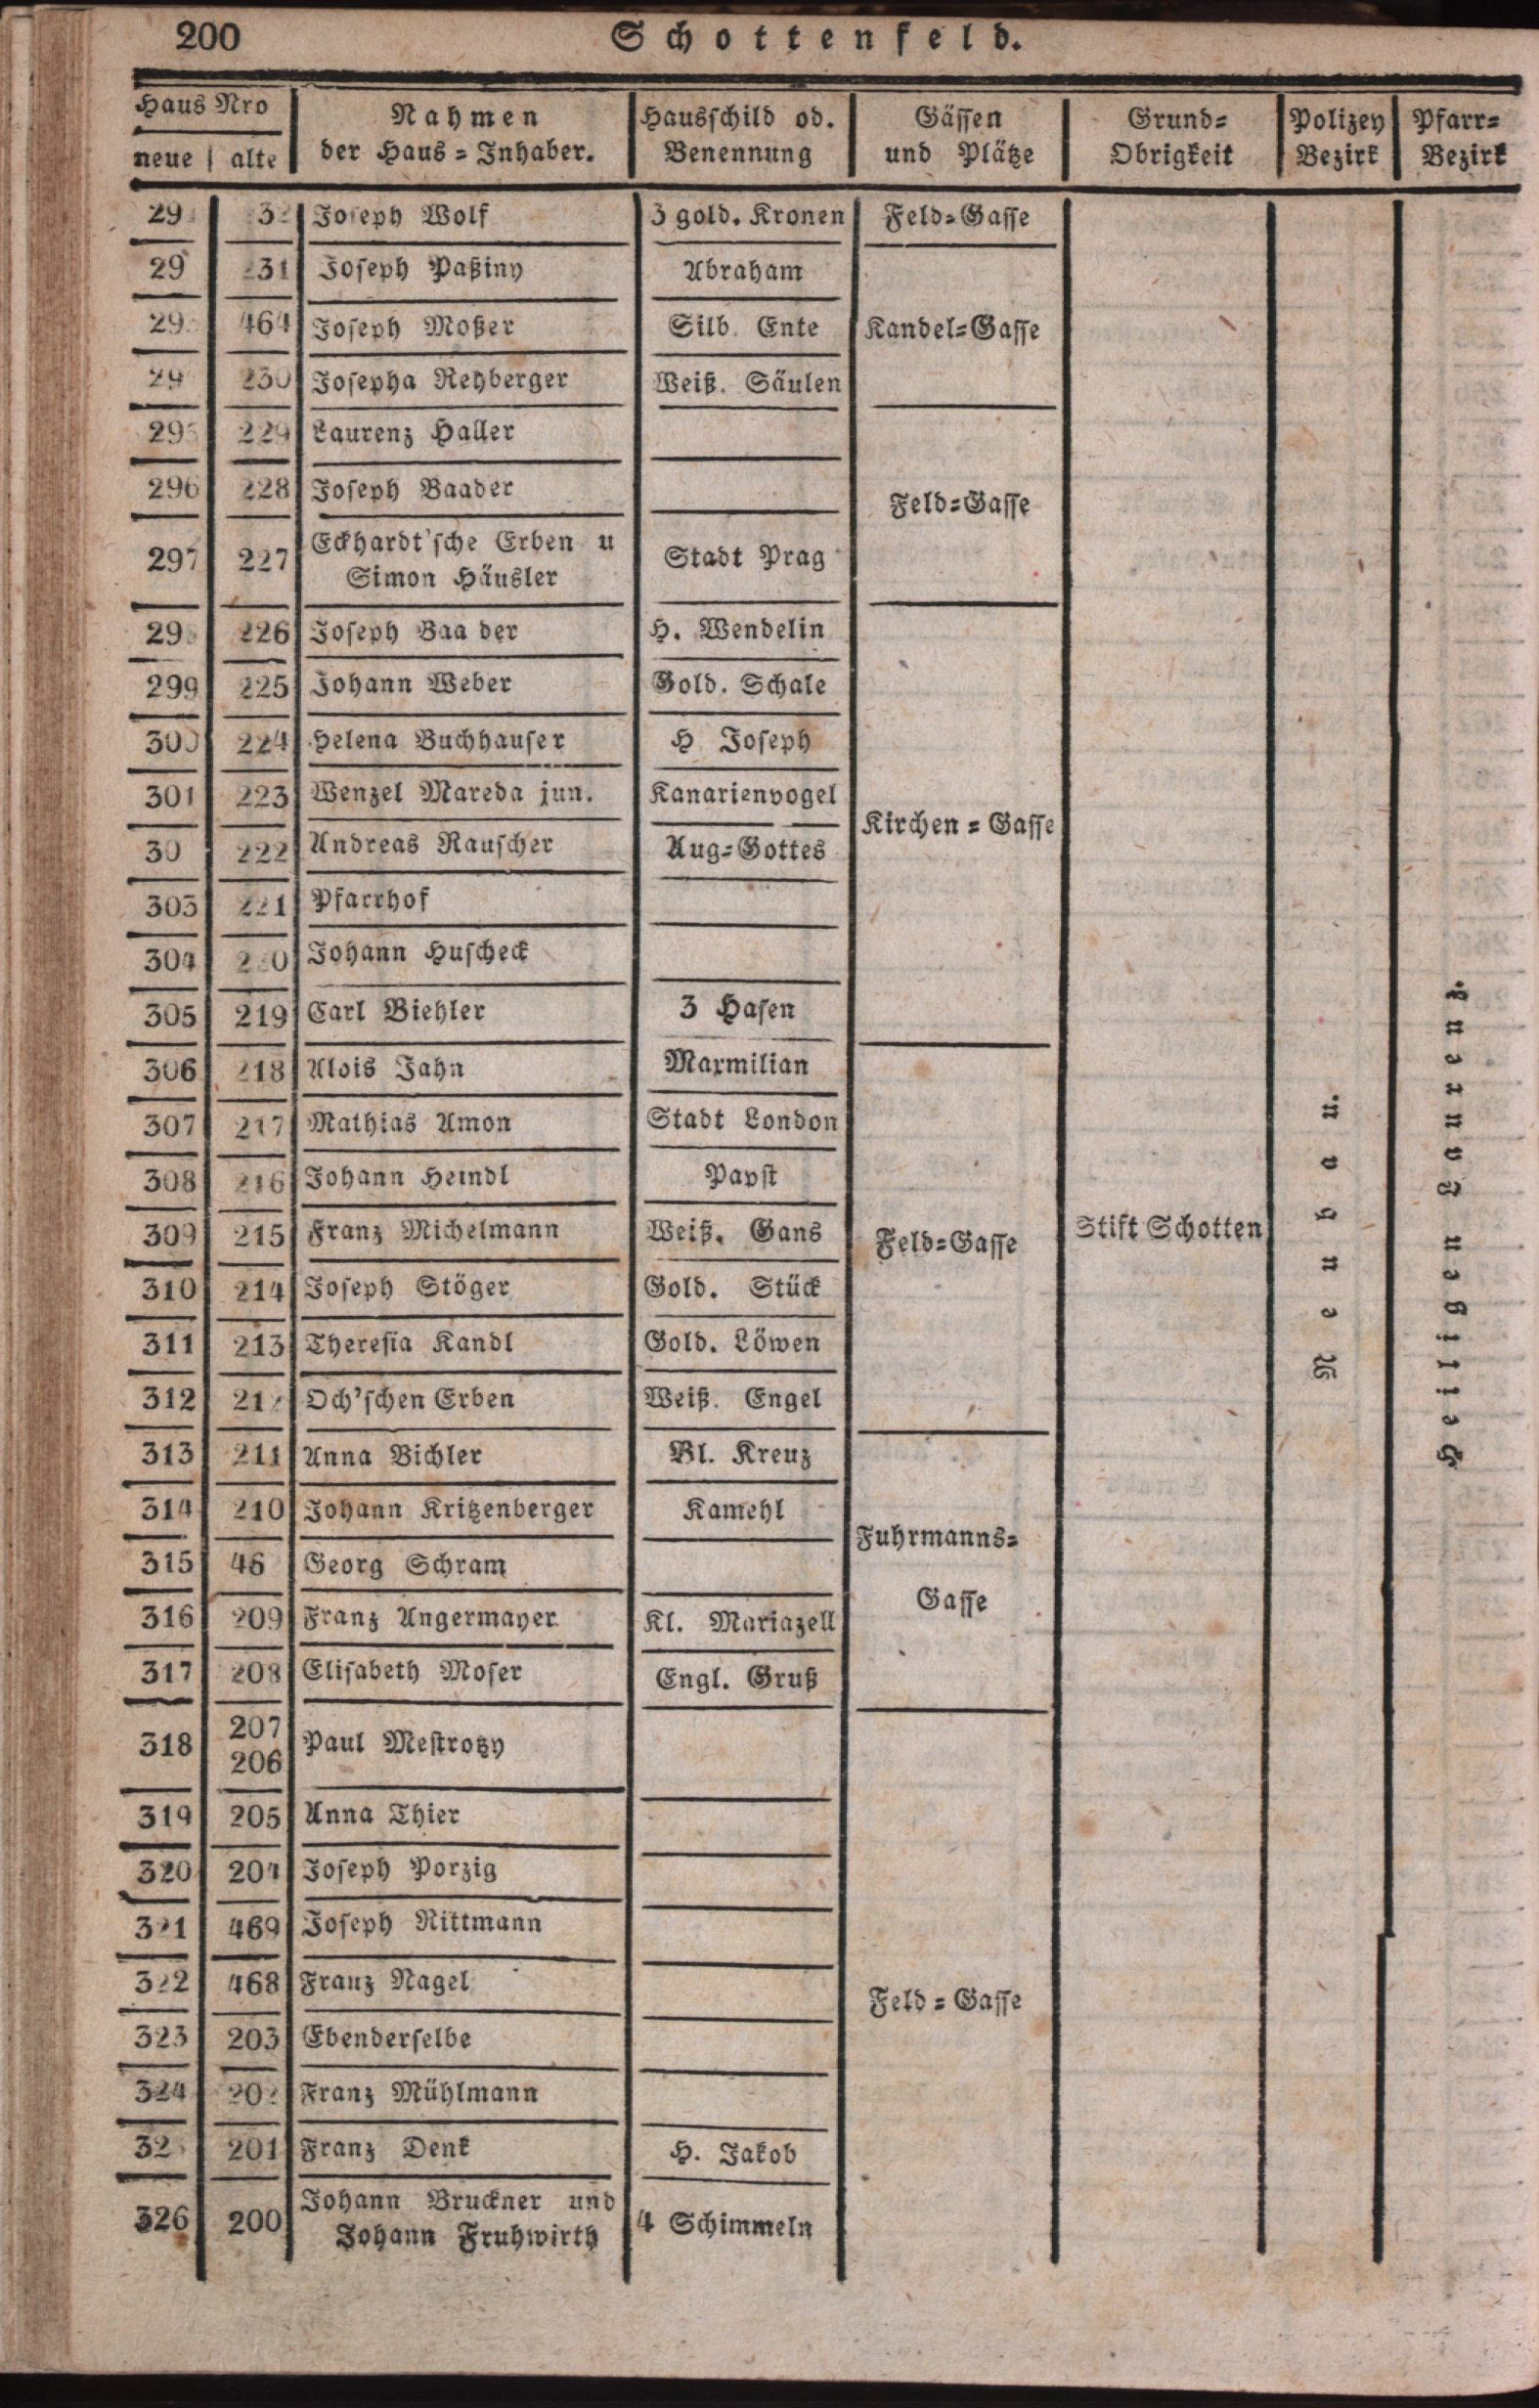 200 Schottenfeld.
Haus Nro
neue | alte
Nahmen
der Haus=Inhaber.
Hausschild od.
Benennung
Gässen
und Plätze
Grund=
Obrigkeit
Polizey
Bezirk
Pfarr=
Bezirk
Joseph Wolf 3 gold. Kronen Feld=Gasse
231 Joseph Paßiny Abraham
464 Joseph Moßer Silb. Ente Kandel=Gasse
230 Josepha Reyberger Weiß. Säulen
229 Laurenz Haller
296 228 Joseph Baader Feld=Gasse
297 227 Eckhardt'sche Erben u
Simon Häusler Stadt Prag
226 Joseph Baader H. Wendelin
299 225 Johann Weber Gold. Schale
300 224 Helena Buchhauser H Joseph
301 223 Wenzel Mareda jun. Kanarienvogel
Kirchen=Gasse
222 Andreas Rauscher Aug=Gottes
303 221 Pfarrhof
304 Johann Huscheck
305 219 Carl Biehler 3 Hasen
306 218 Alois Jahn Maxmilian
307 217 Mathias Amon Stadt London
308 216 Johann Heindl Papst
309 215 Franz Michelmann Weiß. Gans Feld=Gasse Stift Schotten
310 214 Joseph Stöger Gold. Stück
311 213 Theresia Kandl Gold. Löwen
312 Och'schen Erben Weiß. Engel
313 211 Anna Bichler Bl. Kreuz
314 210 Johann Kritzenberger Kamehl
Fuhrmanns=
315 Georg Schram
Gasse
316 209 Franz Angermayer Kl. Mariazell
317 208 Elisabeth Moser Engl. Gruß
318 207
206 Paul Mestrotzy
319 205 Anna Thier
320 204 Joseph Porzig
321 469 Joseph Rittmann
322 468 Franz Nagel
Feld=Gasse
323 203 Ebenderselbe
324 202 Franz Mühlmann
201 Franz Denk H. Jakob
326 200 Johann Bruckner und
Johann Fruhwirth 4 Schimmeln
Neubau.
Heiligen Laurenz.